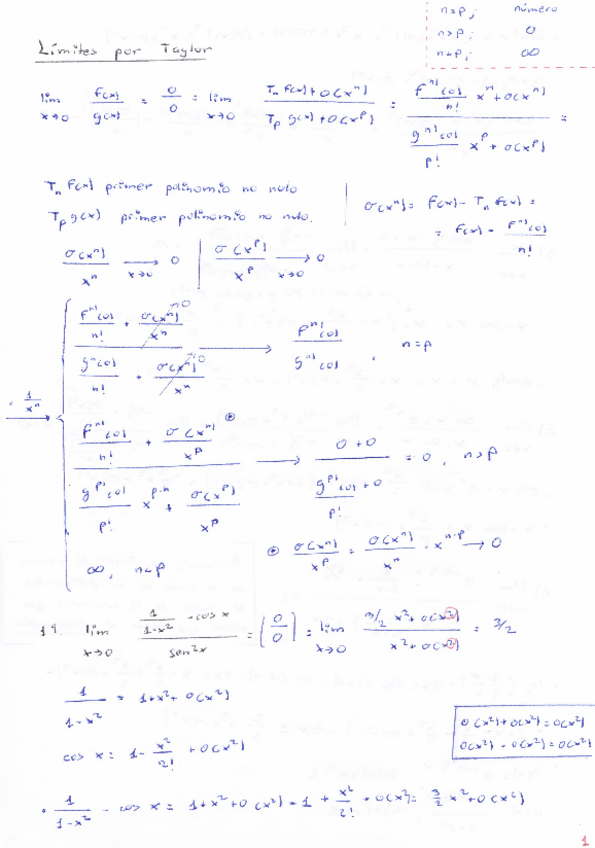 n=p; número
n>p; 0
n<p; ∞
Límites por Taylor
lim x→0 f(x)/g(x) = 0/0 = lim x→0 (Tn f(x)+o(x^n))/(Tp g(x)+o(x^p)) = (f^n)(0)/n! x^n+o(x^n))/(g^n)(0)/p! x^p+o(x^p)) =
Tn f(x) primer polinomio no nulo
Tp g(x) primer polinomio no nulo.
σ(x^n) = f(x) - Tn f(x) =
= f(x) - f^n)(0)/n!
σ(x^n)/x^n → x→0 0 | σ(x^p)/x^p → x→0 0
(f^n)(0)/n! + σ(x^n)/x^n →0)/(g^n(0)/n! + σ(x^n)/x^n →0) → f^n)(0)/g^n)(0), n=p
· 1/x^n →
(f^n)(0)/n! + σ(x^n)/x^p ⊛)/(g^p)(0)/p! x^p-n + σ(x^p)/x^p) → (0+0)/(g^p)(0)/p! +0) = 0, n>p
∞, n<p
⊛ σ(x^n)/x^p = σ(x^n)/x^n · x^n-p → 0
1) lim x→0 (1/(1-x²) - cos x)/sen²x = (0/0) = lim x→0 (3/2 x²+o(x²))/(x²+o(x²)) = 3/2
1/(1-x²) = 1+x²+o(x²)
o(x²)+o(x²)=o(x²)
o(x²)-o(x²)=o(x²)
cos x = 1 - x²/2! + o(x²)
· 1/(1-x²) - cos x = 1+x²+o(x²) - 1 + x²/2! + o(x²) = 3/2 x²+o(x²)
1